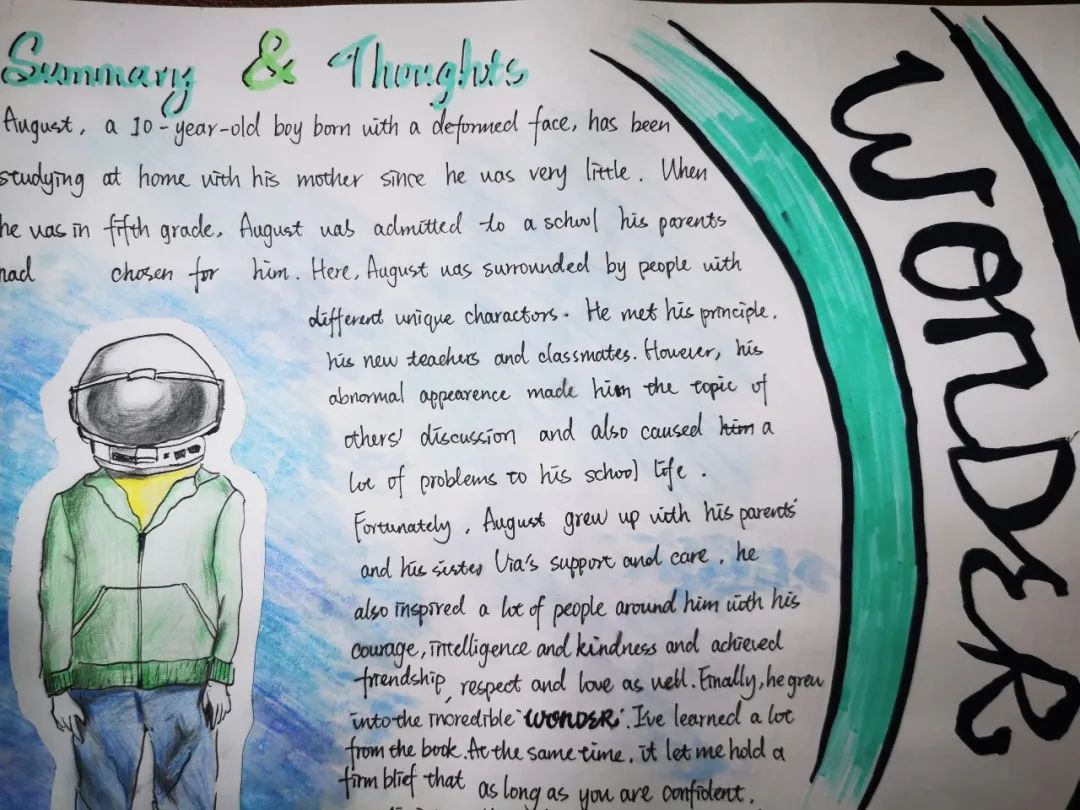 Summary & Thoughts
August, a 10-year-old boy born with a deformed face, has been
studying at home with his mother since he was very little. When
he was in fifth grade, August was admitted to a school his parents
had chosen for him. Here, August was surrounded by people with
different unique charactors. He met his principle,
his new teachers and classmates. However, his
abnormal appearence made him the topic of
others' discussion and also caused him a
lot of problems to his school life.
Fortunately, August grew up with his parents'
and his sister Via's support and care, he
also inspired a lot of people around him with his
courage, intelligence and kindness and achieved
friendship, respect and love as well. Finally, he grew
into the incredible "WONDER". I've learned a lot
from the book. At the same time, it let me hold a
firm blief that as long as you are confident,
WONDER